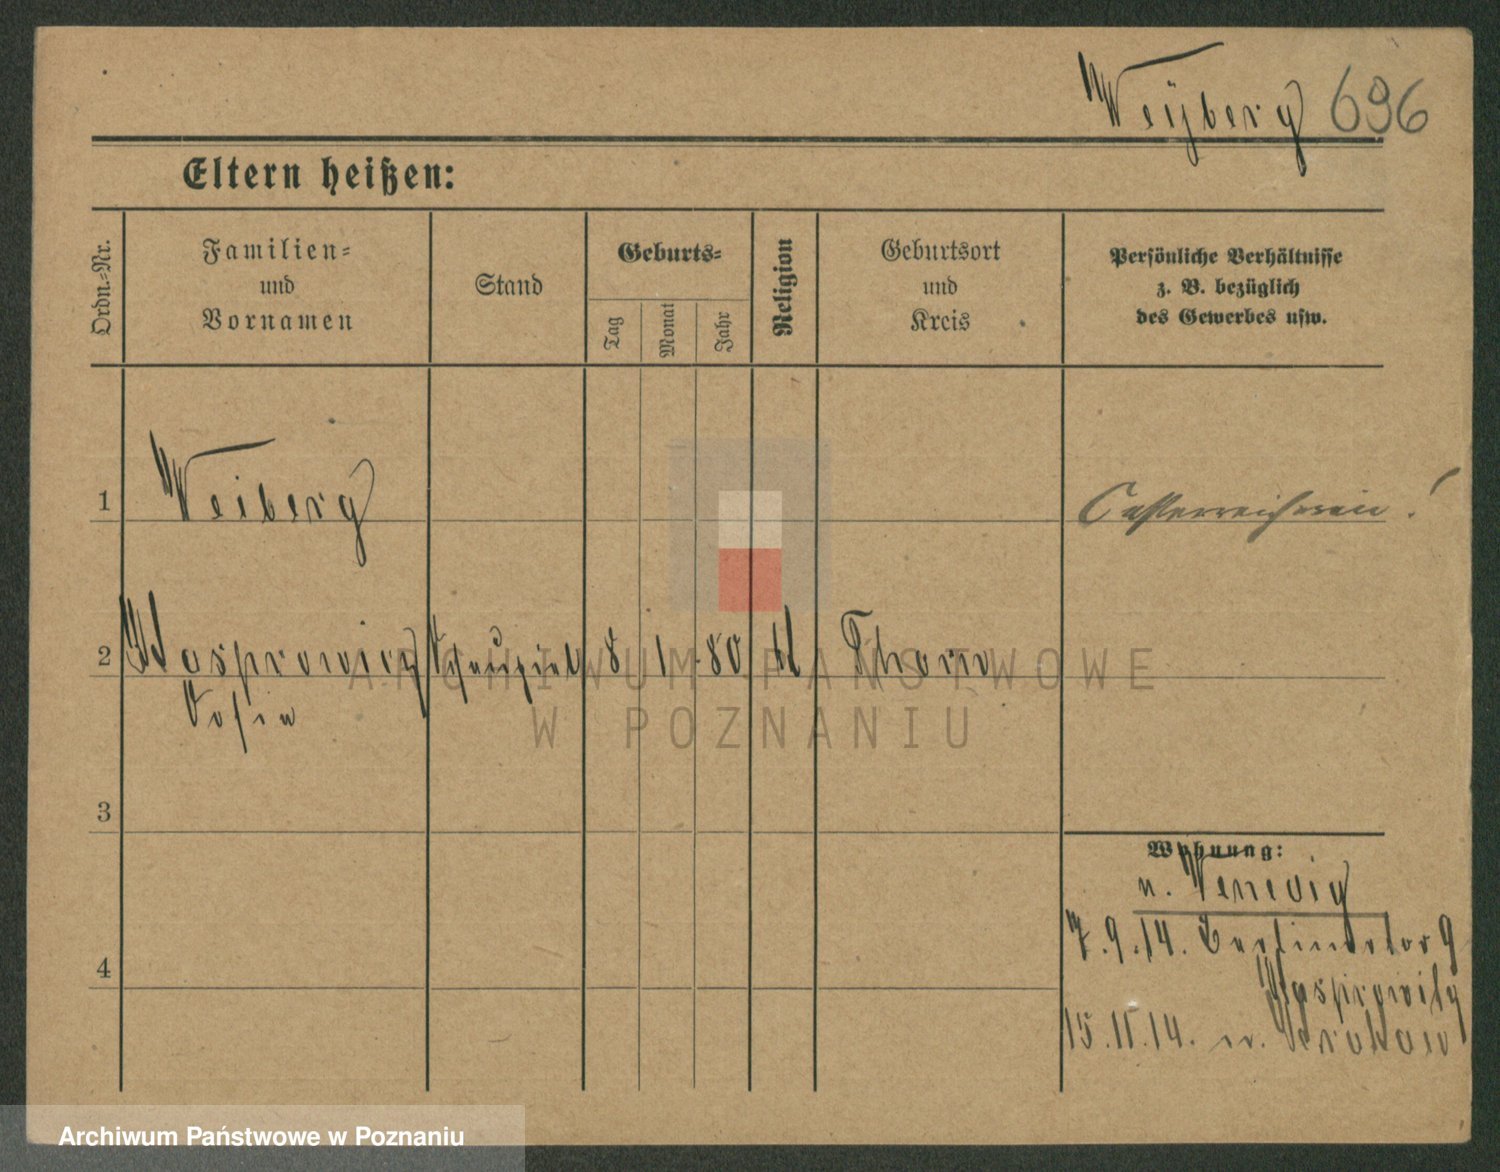 Weÿberg 696
Eltern heißen:
Ordn.-Nr.
Familien-
und
Vornamen
Stand
Geburts-
Tag
Monat
Jahr
Religion
Geburtsort
und
Kreis
Persönliche Verhältnisse
z. B. bezüglich
des Gewerbes usw.
1 Weiberg Oesterreicherin!
2 Kasprowicz 8 1 80 Thorn
Sofie
3
Wohnung:
n. Venedig
7.9.14. Berlinertor 9
4
Kasprowitz
15.11.14. n. Krakau
ARCHIWUM PAŃSTWOWE
W POZNANIU
Archiwum Państwowe w Poznaniu